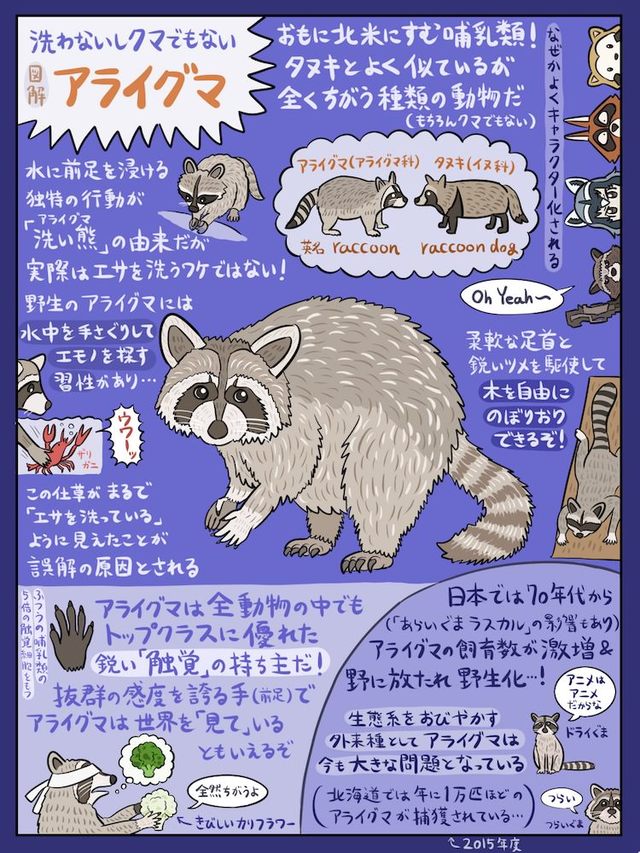 洗わないしクマでもない
図解
アライグマ
おもに北米にすむ哺乳類!
タヌキとよく似ているが
全くちがう種類の動物だ
(もちろんクマでもない)
なぜかよくキャラクター化される
アライグマ(アライグマ科)
タヌキ(イヌ科)
英名 raccoon
raccoon dog
Oh Yeah〜
水に前足を浸ける
独特の行動が
アライグマ
「洗い熊」の由来だが
実際はエサを洗うワケではない!
野生のアライグマには
水中を手さぐりして
エモノを探す
習性があり…
ウワーッ
ザリ
ガニ
この仕草がまるで
「エサを洗っている」
ように見えたことが
誤解の原因とされる
柔軟な足首と
鋭いツメを駆使して
木を自由に
のぼりおり
できるぞ!
ふつうの哺乳類の
5倍の触覚細胞をもつ
アライグマは全動物の中でも
トップクラスに優れた
鋭い「触覚」の持ち主だ!
抜群の感度を誇る手(前足)で
アライグマは世界を「見て」いる
ともいえるぞ
全然ちがうよ
←きびしいカリフラワー
日本では70年代から
(「あらいぐまラスカル」の影響もあり)
アライグマの飼育数が激増&
野に放たれ野生化…!
アニメは
アニメ
だからな
ドライぐま
生態系をおびやかす
外来種としてアライグマは
今も大きな問題となっている
(北海道では年に1万匹ほどの
アライグマが捕獲されている…)
つらい
つらいぐま
↖2015年度